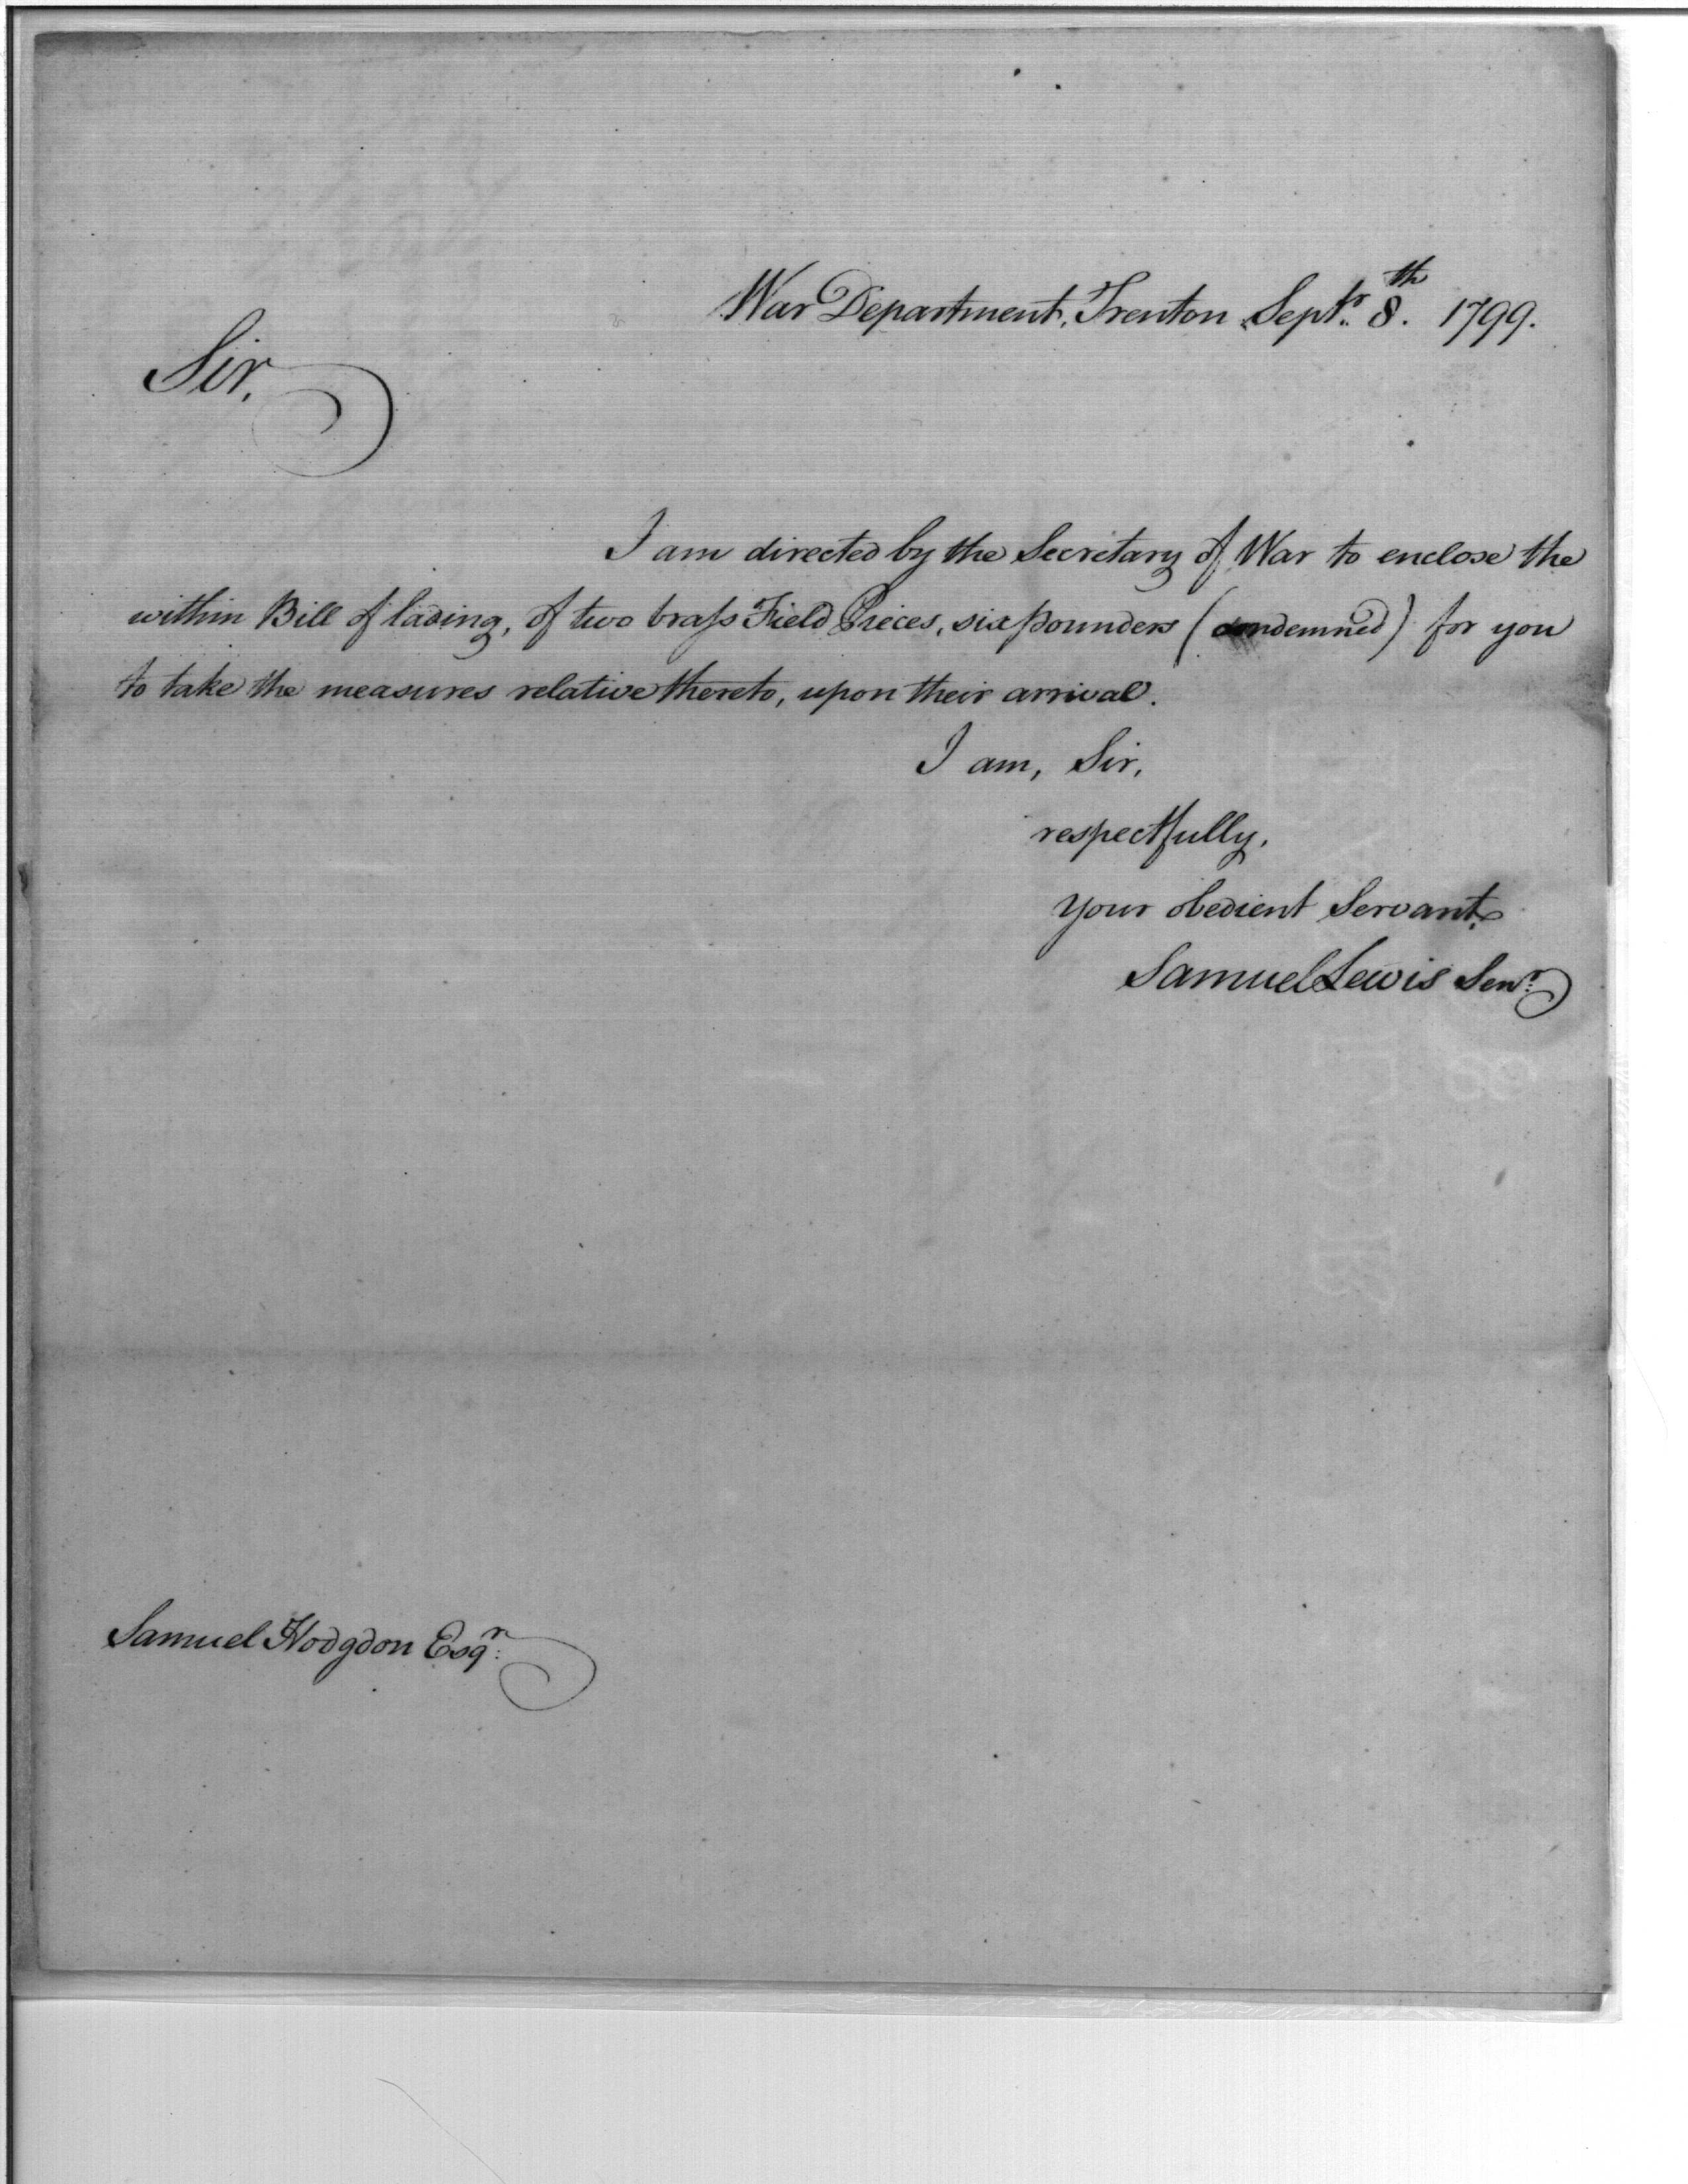 War Department, Trenton Septr. 8th. 1799.
Sir,
I am directed by the Secretary of War to enclose the
within Bill of lading, of two braſs Field Pieces, six pounders (condemned) for you
to take the measures relative thereto, upon their arrival.
I am, Sir,
respectfully,
your obedient Servant,
Samuel Lewis Senr.
Samuel Hodgdon Esqr.